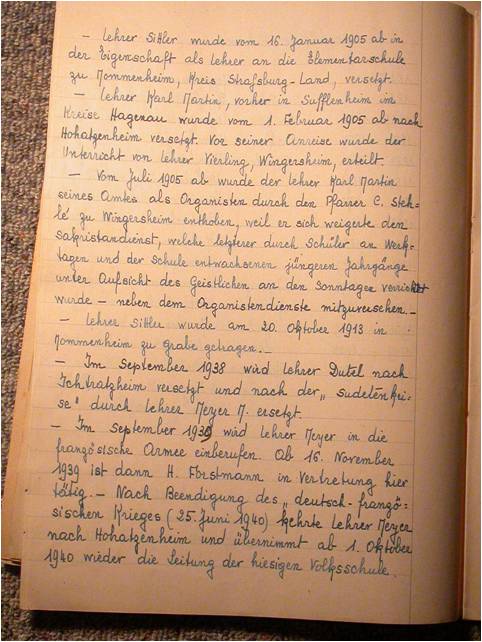 – Lehrer Sittler wurde vom 16. Januar 1905 ab in
der Eigenschaft als Lehrer an die Elementarschule
zu Mommenheim, Kreis Straßburg-Land, versetzt.
– Lehrer Karl Martin, vorher in Sufflenheim im
Kreise Hagenau wurde vom 1. Februar 1905 ab nach
Hohatzenheim versetzt. Vor seiner Anreise wurde der
Unterricht von Lehrer Vierling, Wingersheim, erteilt.
– Vom Juli 1905 ab wurde der Lehrer Karl Martin
seines Amtes als Organisten durch den Pfarrer C. Steh-
lé zu Wingersheim enthoben, weil er sich weigerte den
Sakristandienst, welche letzterer durch Schüler an Werk-
tagen und der Schule entwachsenen jüngeren Jahrgänge
unter Aufsicht des Geistlichen an den Sonntagen verrichtet
wurde – neben dem Organistendienste mitzuversehen. –
– Lehrer Sittler wurde am 20. Oktober 1913 in
Mommenheim zu Grabe getragen. –
– Im September 1938 wird Lehrer Dutel nach
Ichtratzheim versetzt und nach der „Sudetenkri-
se" durch Lehrer Meyer M. ersetzt.
– Im September 1939 wird Lehrer Meyer in die
französische Armee einberufen. Ab 16. November
1939 ist dann H. Forstmann in Vertretung hier
tätig. – Nach Beendigung des „deutsch-franzö-
sischen Krieges (25. Juni 1940) kehrte Lehrer Meyer
nach Hohatzenheim und übernimmt ab 1. Oktober
1940 wieder die Leitung der hiesigen Volksschule.